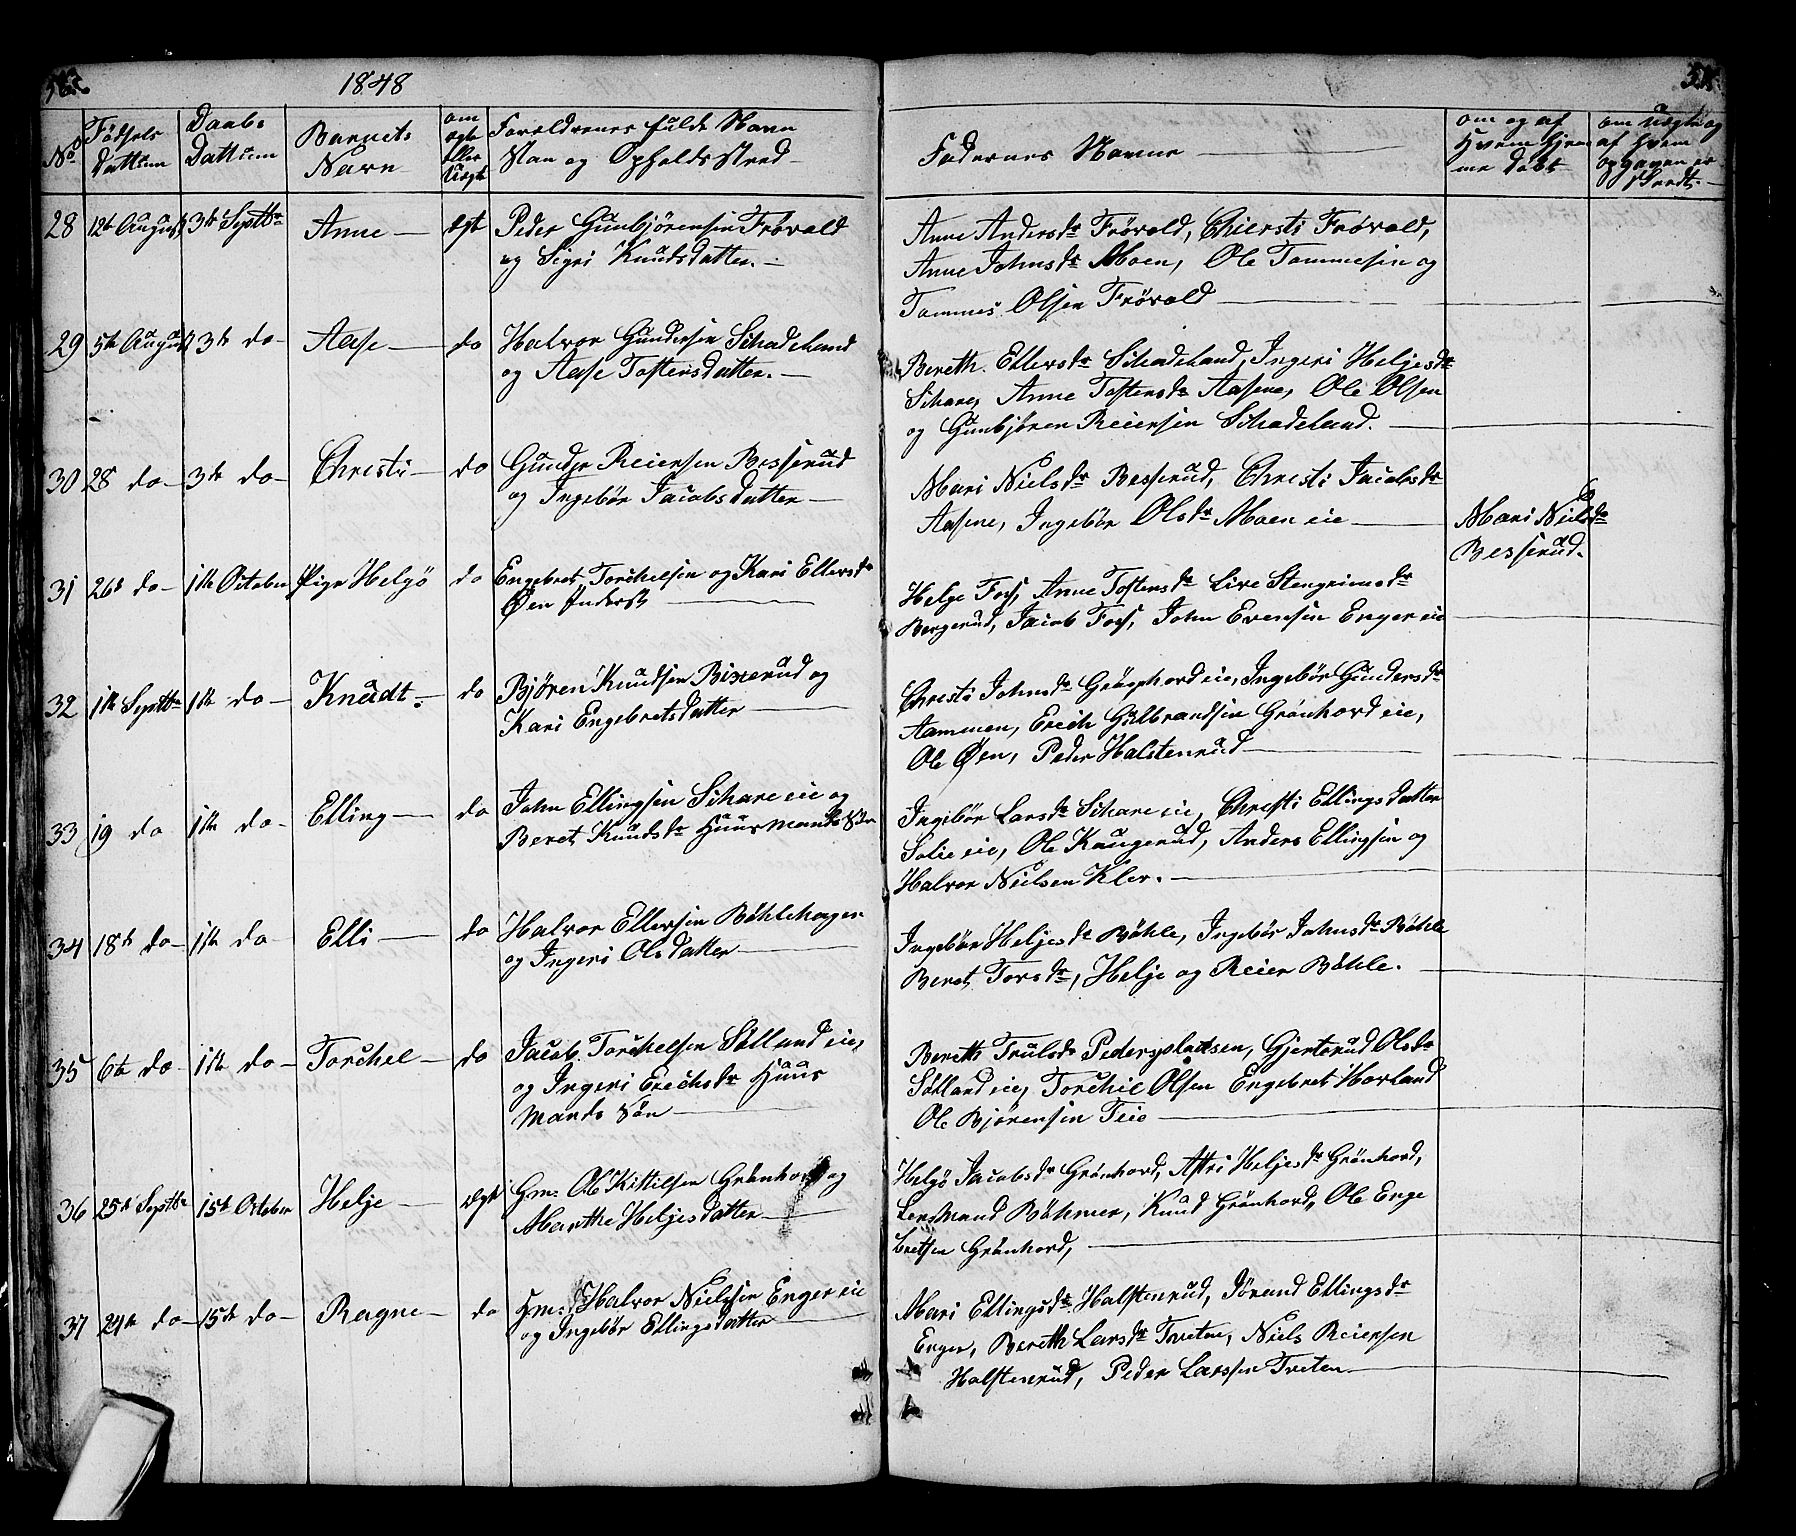 1848
No
Fødsels Dattum
Daabs Dattum
Barnets Navn
om ægte eller Uægte
Foreldrenes fulde Navn Stan og Opholds sted
Fadernes Navne
om og af Hvem Hjemme døbt
om Uægte og af hvem opgaven er skeedt
28 12te August 3de Septbr Anne ægt Peder Gunbjørensen Frøvold
og Sigri Knudsdatter.
Anne Andersdr Frøvold, Chiersti Frøvold,
Anne Johnsdr Moen, Ole Tommesen og
Tommes Olsen Frøvold
29 5te August 3de do Aase do Halvor Gundersen Skadeland
og Aase Tostensdatter.
Bereth Ellersdr Skadeland, Ingeri Heljesdr
Skare, Anne Tostensdr Aasene, Ole Olsen
og Gunbjøren Reiersen Skadeland.
30 28 do 3de do Christi do Gunder Reiersen Besserud
og Ingebør Jacobsdatter
Mari Nielsdr Besserud, Christi Jacobsdr
Aasene, Ingebør Olsdr Moen eie
Mari Nielsdr
Besserud.
31 26de do 1ste October Pige Helgö do Engebret Torchelsen og Kari Ellersdr
Øen
Helge Foss, Anne Tostensdr Live Stengrimsdr
Bergerud, Jacob Foss, John Evensen Enger eie
32 1ste Septbr 1ste do Knudt. do Bjøren Knudsen Bixerud og
Kari Engebretsdatter
Christi Johnsdr Grønhord eie, Ingebør Gundersdr
Aammen, Erich Gulbrandsen Grönhord eie,
Ole Øen, Peder Halstenrud
33 19 do 1ste do Elling do John Ellingsen Skare eie og
Beret Knudsdr Huusmands Søn
Ingebör Larsdr Skare eie, Christi Ellingsdatter
Solie eie, Ole Kaugerud, Anders Ellingsen og
Halvor Nielsen Klev.
34 18de do 1ste do Elli do Halvor Ellersen Böhlehagen
og Ingeri Olsdatter
Ingebör Heljesdr Böhle, Ingebör Johnsdr Böhle
Beret Torsdr, Helje og Reier Böhle.
35 6te do 1ste do Torchel do Jacob Torchelsen Sølland eie,
og Ingeri Erichsdr Huus
Mands Søn
Bereth Trulsdr Pedersplatsen, Gjertrud Olsdr
Sølland eie, Torchil Olsen Engebret Horland
Ole Bjørensen Teie
36 25de Septbr 15de October Helje ægt Gm. Ole Kittilsen Grönhord og
Marthe Heljesdatter
Helgö Jacobsdr Grönhord, Astri Heljesdr Grönhord,
Lensmand Böhmer, Knud Grönhord, Ole Enge
bretsen Grönhord,
37 24de do 15de do Ragne do Hm. Halvor Nielssen Enger eie
og Ingebör Ellingsdatter
Mari Ellingsdr Halstenrud, Jörand Ellingsdr
Enger, Bereth Larsdr Treten, Niels Reiersen
Halstenrud, Peder Larssen Treten